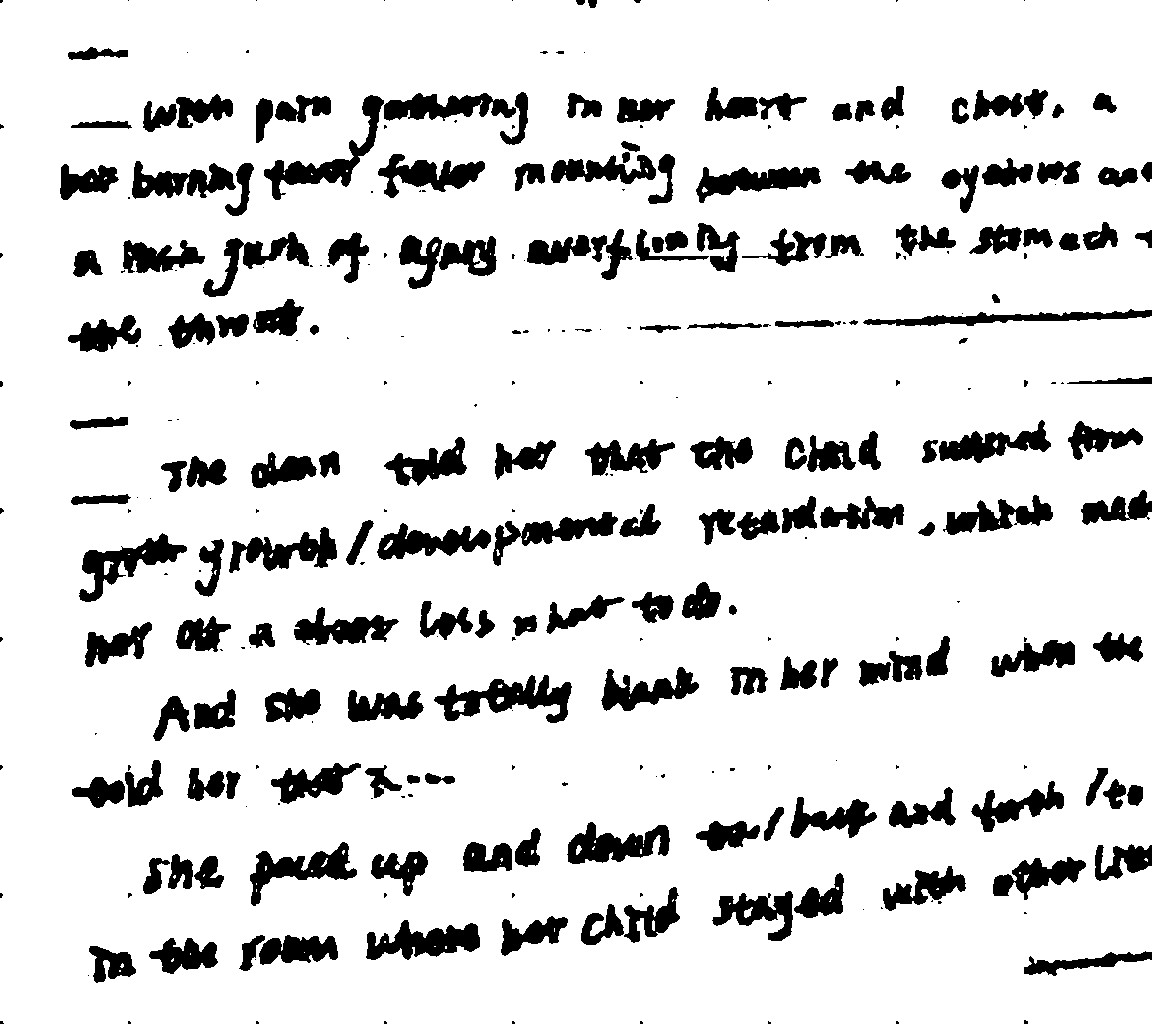 With pain gathering in her heart and chest, a
her burning fever fever mounting between the eyebrows and
a gush of agony overflowing from the stomach
the throat.
The dean told her that the child suffered from
growth/developmental retardation, which made
her at a loss what to do.
And she was totally blank in her mind when the
told her that X...
She paced up and down to/back and forth/to
in the room where her child stayed with other